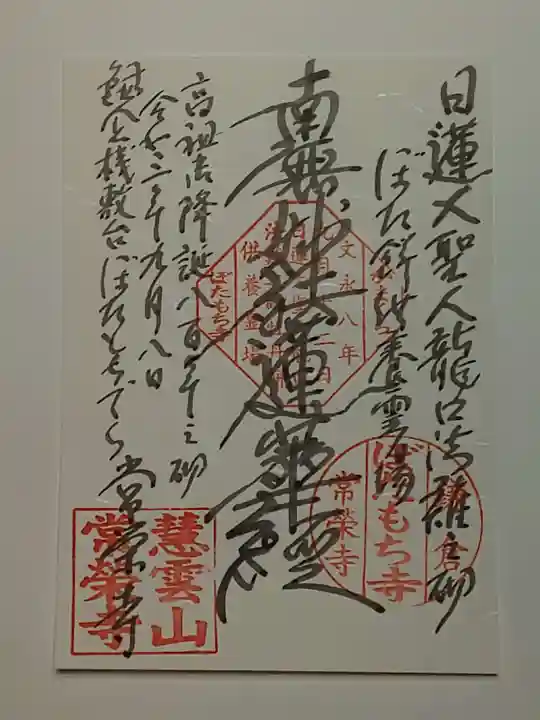 日蓮大聖人龍口法難砌
ぼた餅供養霊場
南無妙法蓮華経
高祖御降誕八百年之砌
令和三年九月八日
鎌倉桟敷台ぼたもちでら常榮寺
文永八年
九月十二日
供養霊場
ぼたもち寺
鎌倉
ぼたもち寺
常榮寺
慧雲山
常榮寺